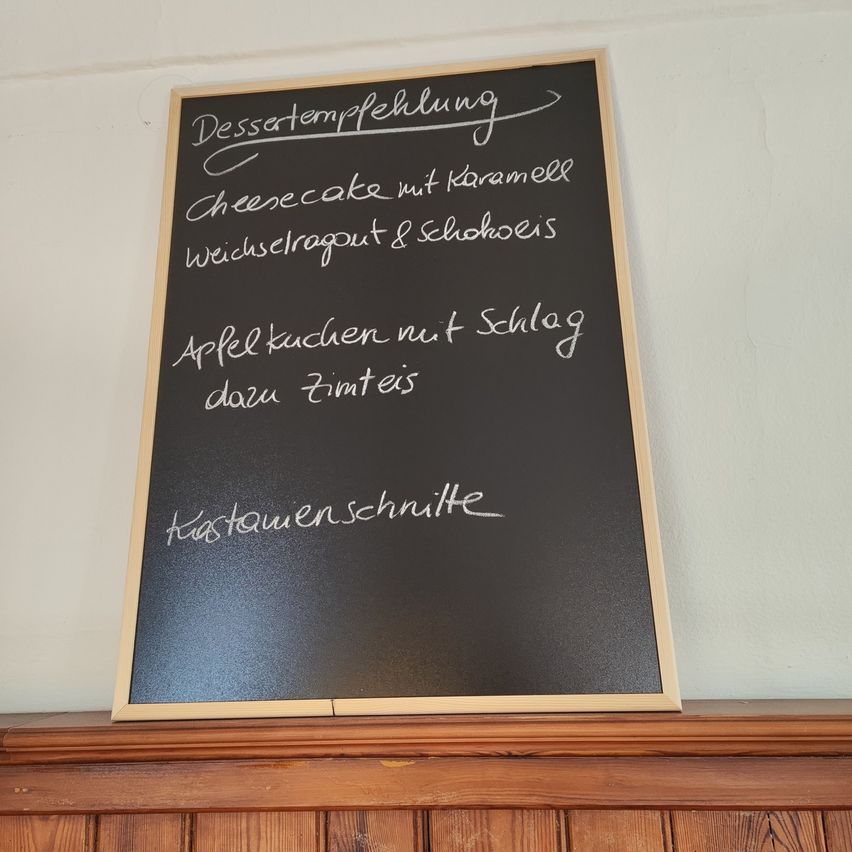 Dessertempfehlung
Cheesecake mit Karamell
Weichselragout & Schokoeis
Apfelkuchen mit Schlag
dazu Zimteis
Kastanienschnitte